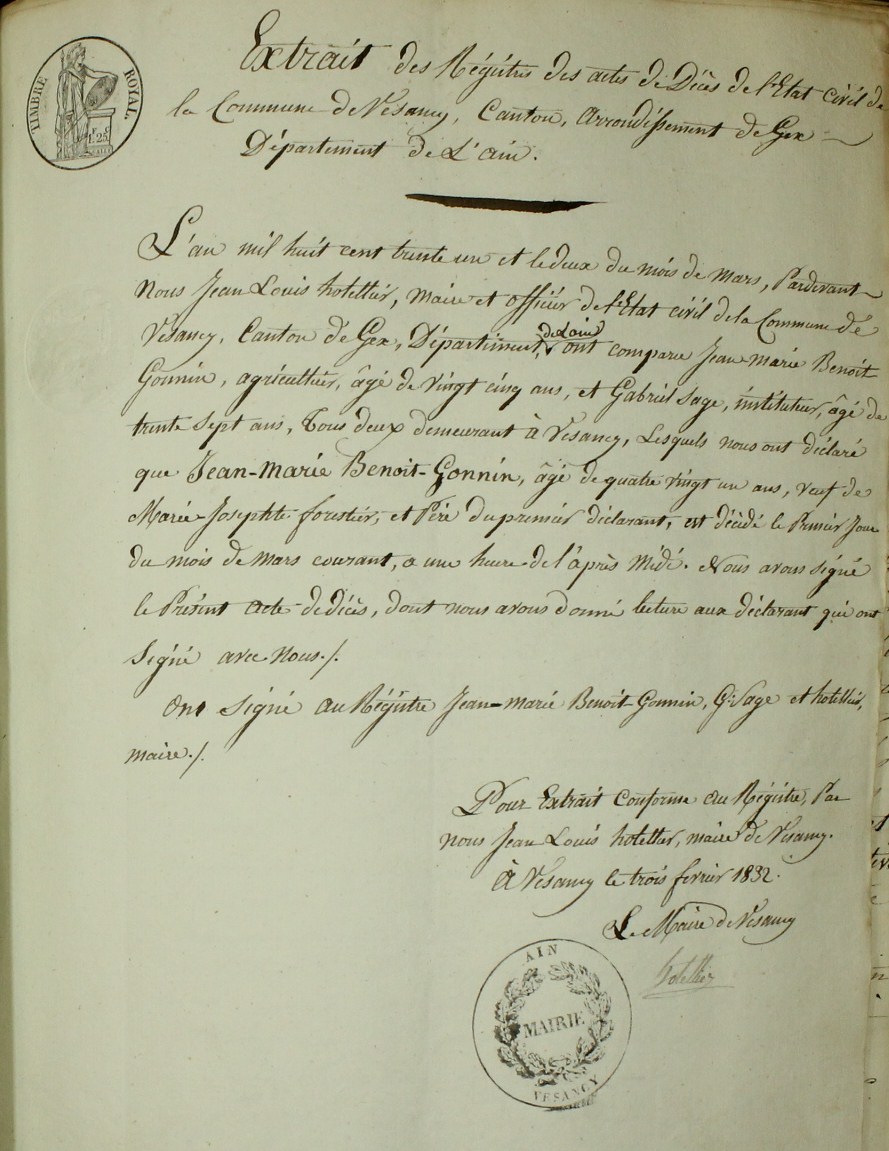 TIMBRE ROYAL
1F. 25C
Extrait des Régistres des actes de Décès de l'Etat civil de
la Commune de Vesancy, Canton, arrondissement de Gex
Département de L'ain.
L'an mil huit cent trente un et le deux du mois de mars, Pardevant
Nous Jean Louis hotellier, maire et officier de l'Etat civil de la Commune de
Vesancy, Canton de Gex, Département, de L'ain ont comparu Jean-Marie Benoit
Gonnin, agriculteur, âgé de vingt cinq ans, et Gabriel Sage, instituteur, âgé de
trente sept ans, Tous deux demeurant à Vesancy, Lesquels nous ont déclaré
que Jean-Marie Benoit-Gonnin, âgé de quatre vingt un ans, veuf de
Marie-Josephte forestier, et Père du premier déclarant, est décédé le Premier Jour
du mois de mars courant, a une heure de l'après Midé. Nous avons signé
le Présent acte de décès, dont nous avons donné lecture aux déclarant qui ont
Signé avec Nous./.
Ont Signé au Régistre Jean-marie Benoit-Gonnin, G: Sage et hotellier,
maire./.
Pour Extrait conforme au Régistre, Par
nous Jean Louis hotellier, maire de Vesancy.
à Vesancy le trois fevrier 1832.
Le Maire de Vesancy
hotellier
AIN
MAIRIE
VESANCY